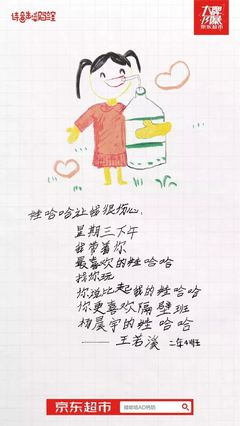 大牌
京东超市
娃哈哈让我很伤心
星期三下午
我带着你
最喜欢的娃哈哈
找你玩
你说比起我的娃哈哈
你更喜欢隔壁班
杨晨宇的娃哈哈
——王若溪 二年4班
京东超市
娃哈哈AD钙奶